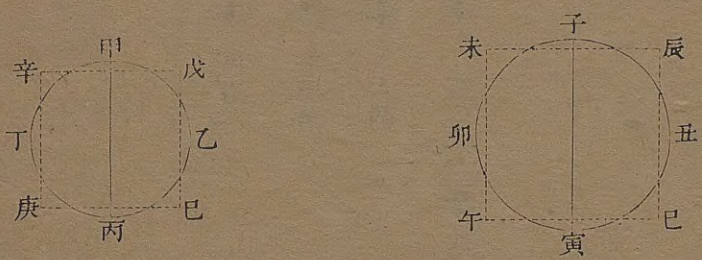 甲
辛 戊
丁 乙
庚 巳
丙
子
未 辰
卯 丑
午 巳
寅